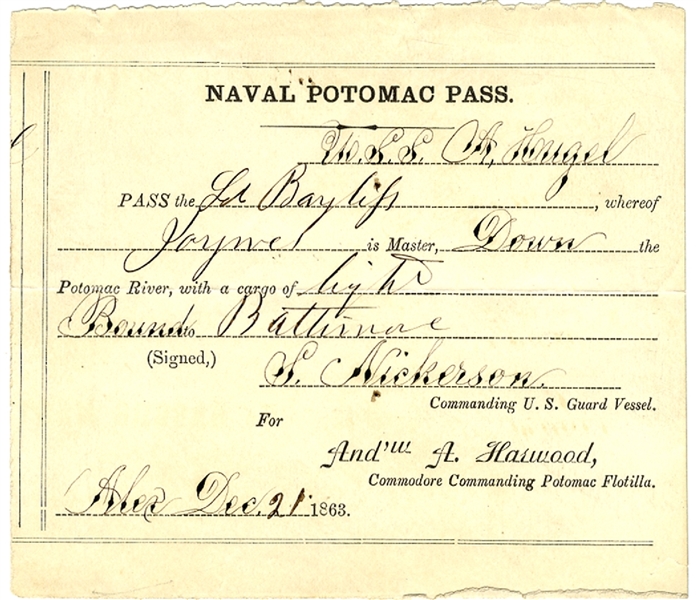 NAVAL POTOMAC PASS.
U.S.S. A. Hugel
PASS the Sch Bayliss, whereof
Joynes is Master, Down the
Potomac River, with a cargo of light
Bound to Baltimore
(Signed,) S. Nickerson.
Commanding U. S. Guard Vessel.
For
And'w A. Harwood,
Commodore Commanding Potomac Flotilla.
Alex Dec. 21 1863.